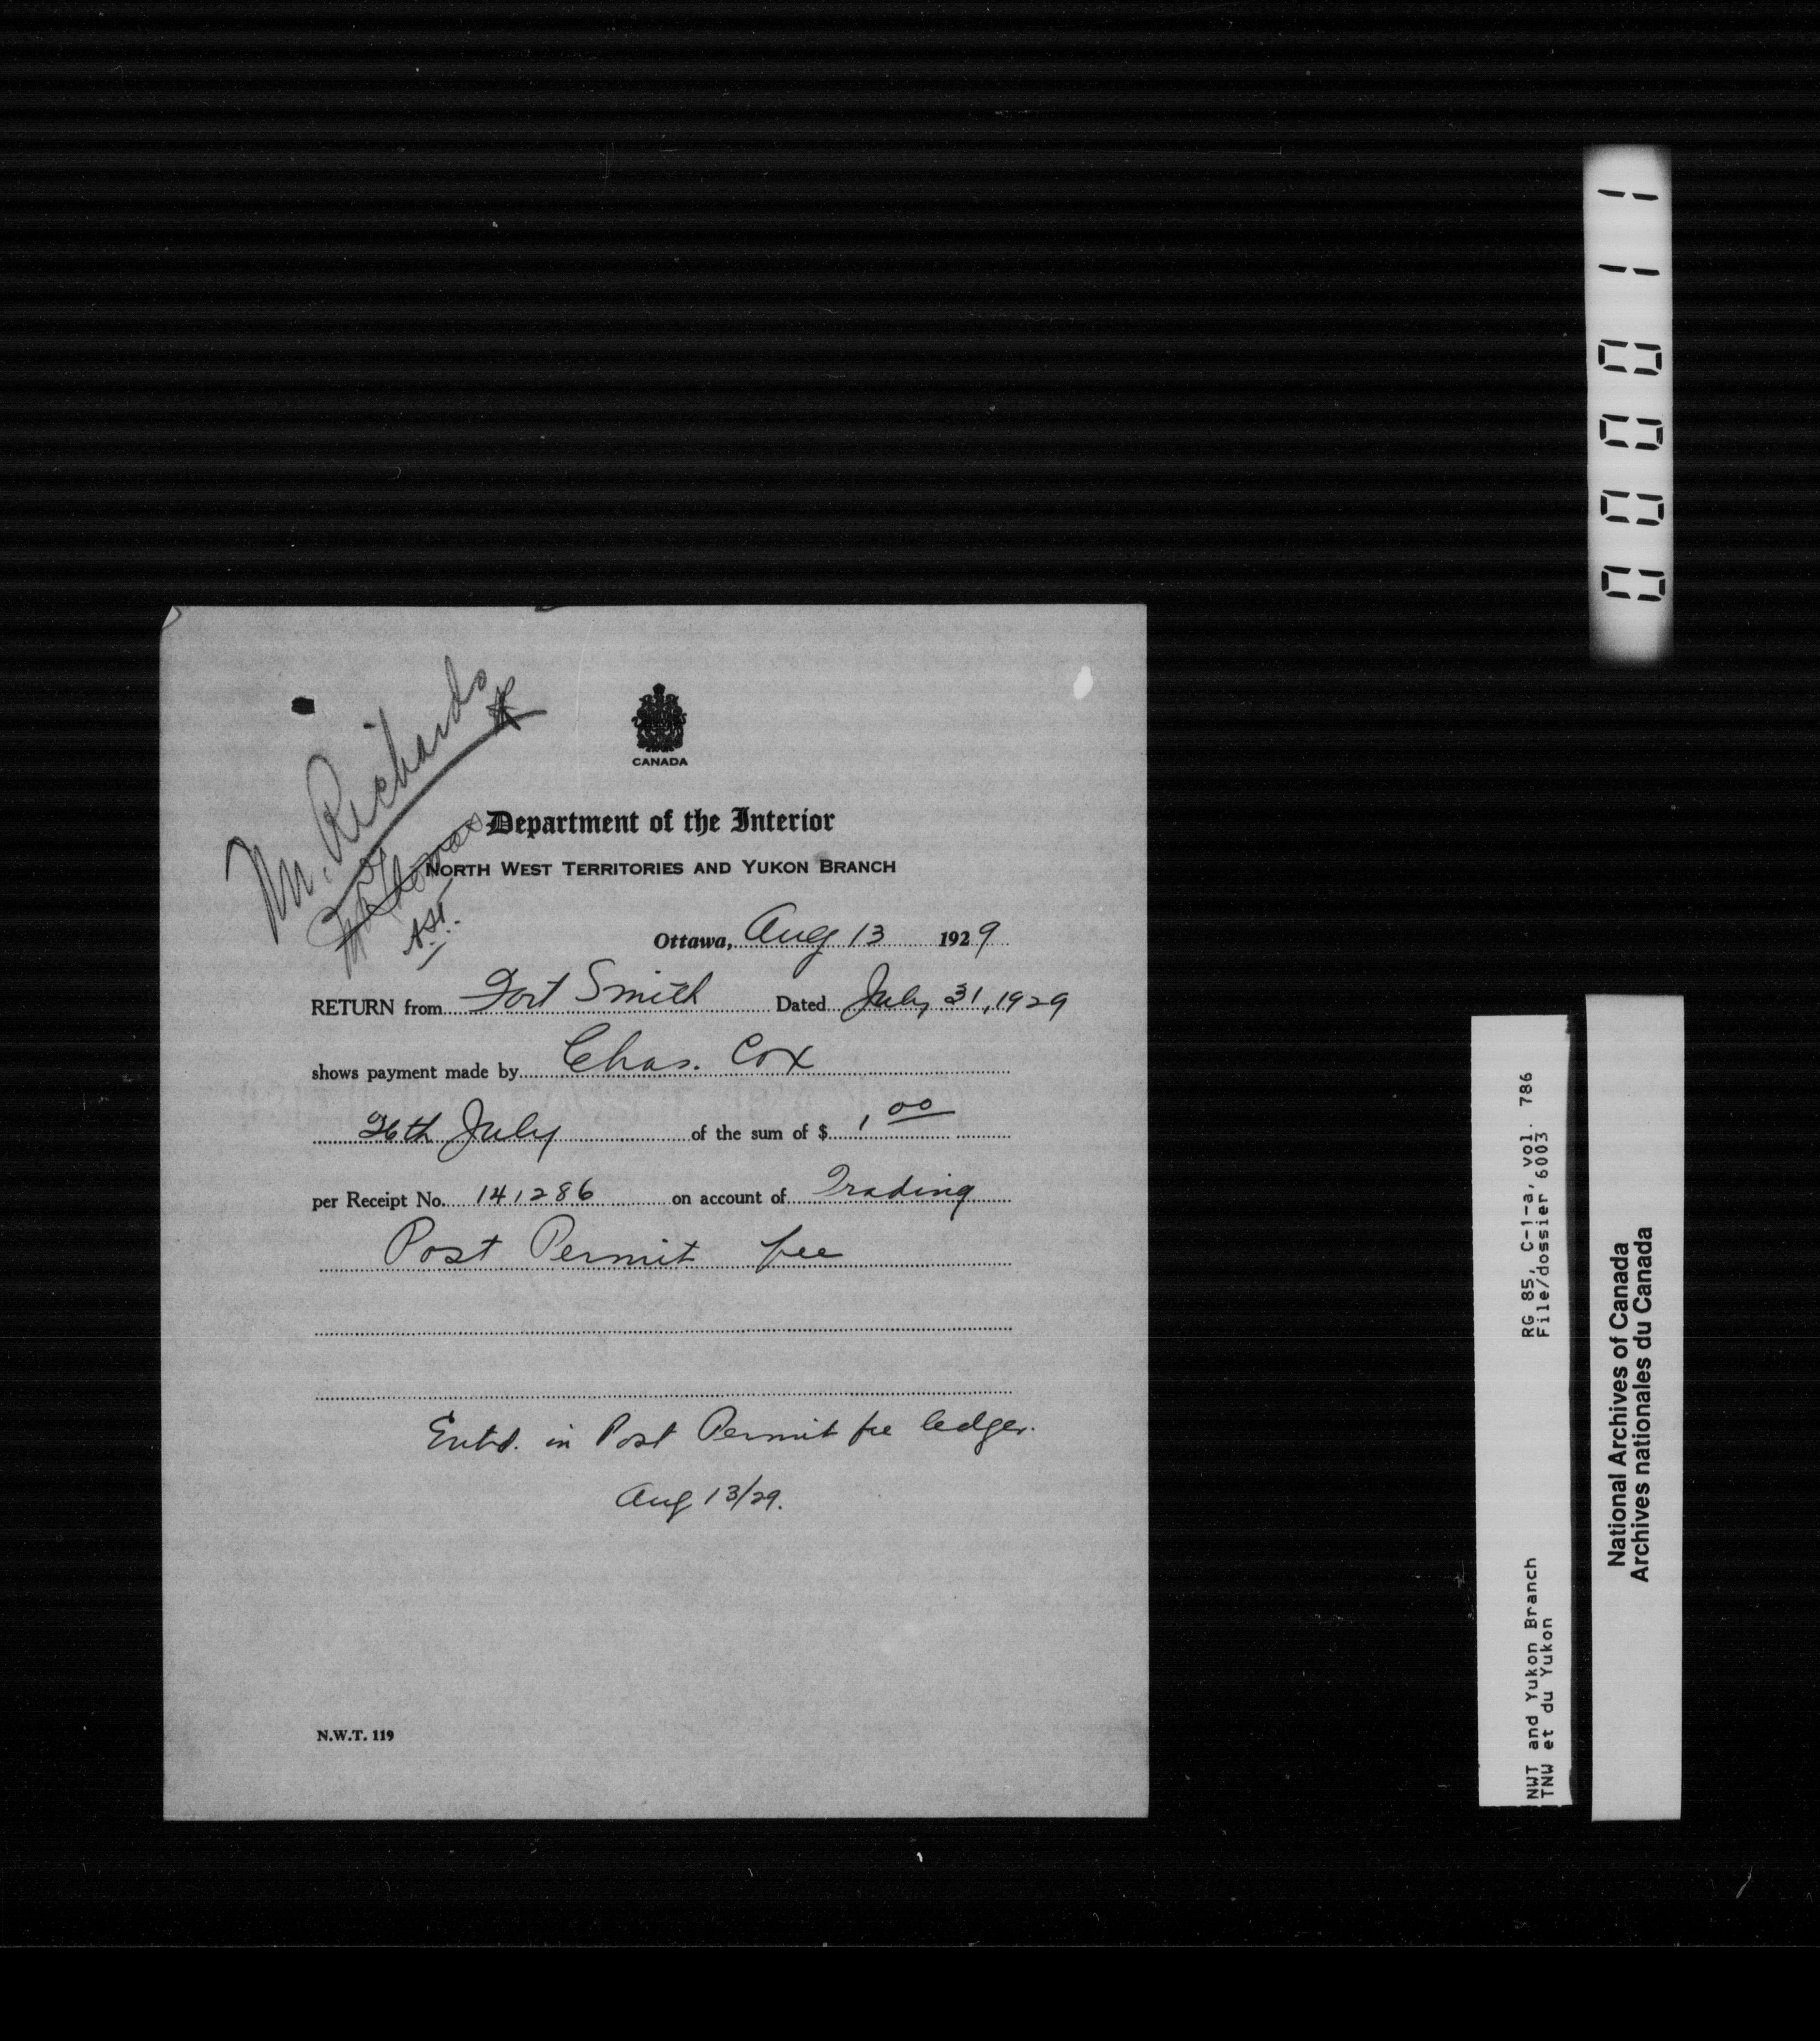 Mr. Richards
CANADA
Department of the Interior
NORTH WEST TERRITORIES AND YUKON BRANCH
Ottawa, Aug 13 1929
RETURN from Fort Smith Dated July 31, 1929
shows payment made by Chas. Cox
26th July of the sum of $ 1.00
per Receipt No. 141286 on account of Trading
Post Permit fee
Entd. in Post Permit fee ledger.
Aug 13/29.
N.W.T. 119
000011
RG 85, C-1-a, vol. 786
File/dossier 6003
NWT and Yukon Branch
TNW et du Yukon
National Archives of Canada
Archives nationales du Canada